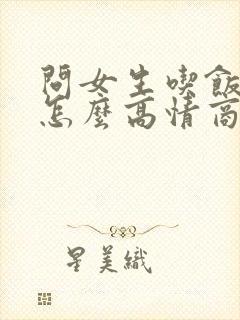 問女生喫飯
怎麼高情商
星美織